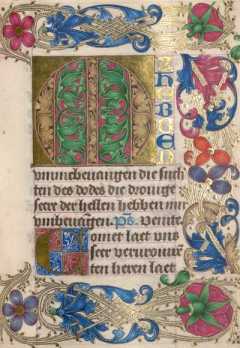 M
HEBEN
vmmebeuangen die such
ten des dodes die drouige
seer der hellen hebben mi
vmbeuāgen. Ps. Venite
Comet laet vns
seer verurouwē
den heren laet